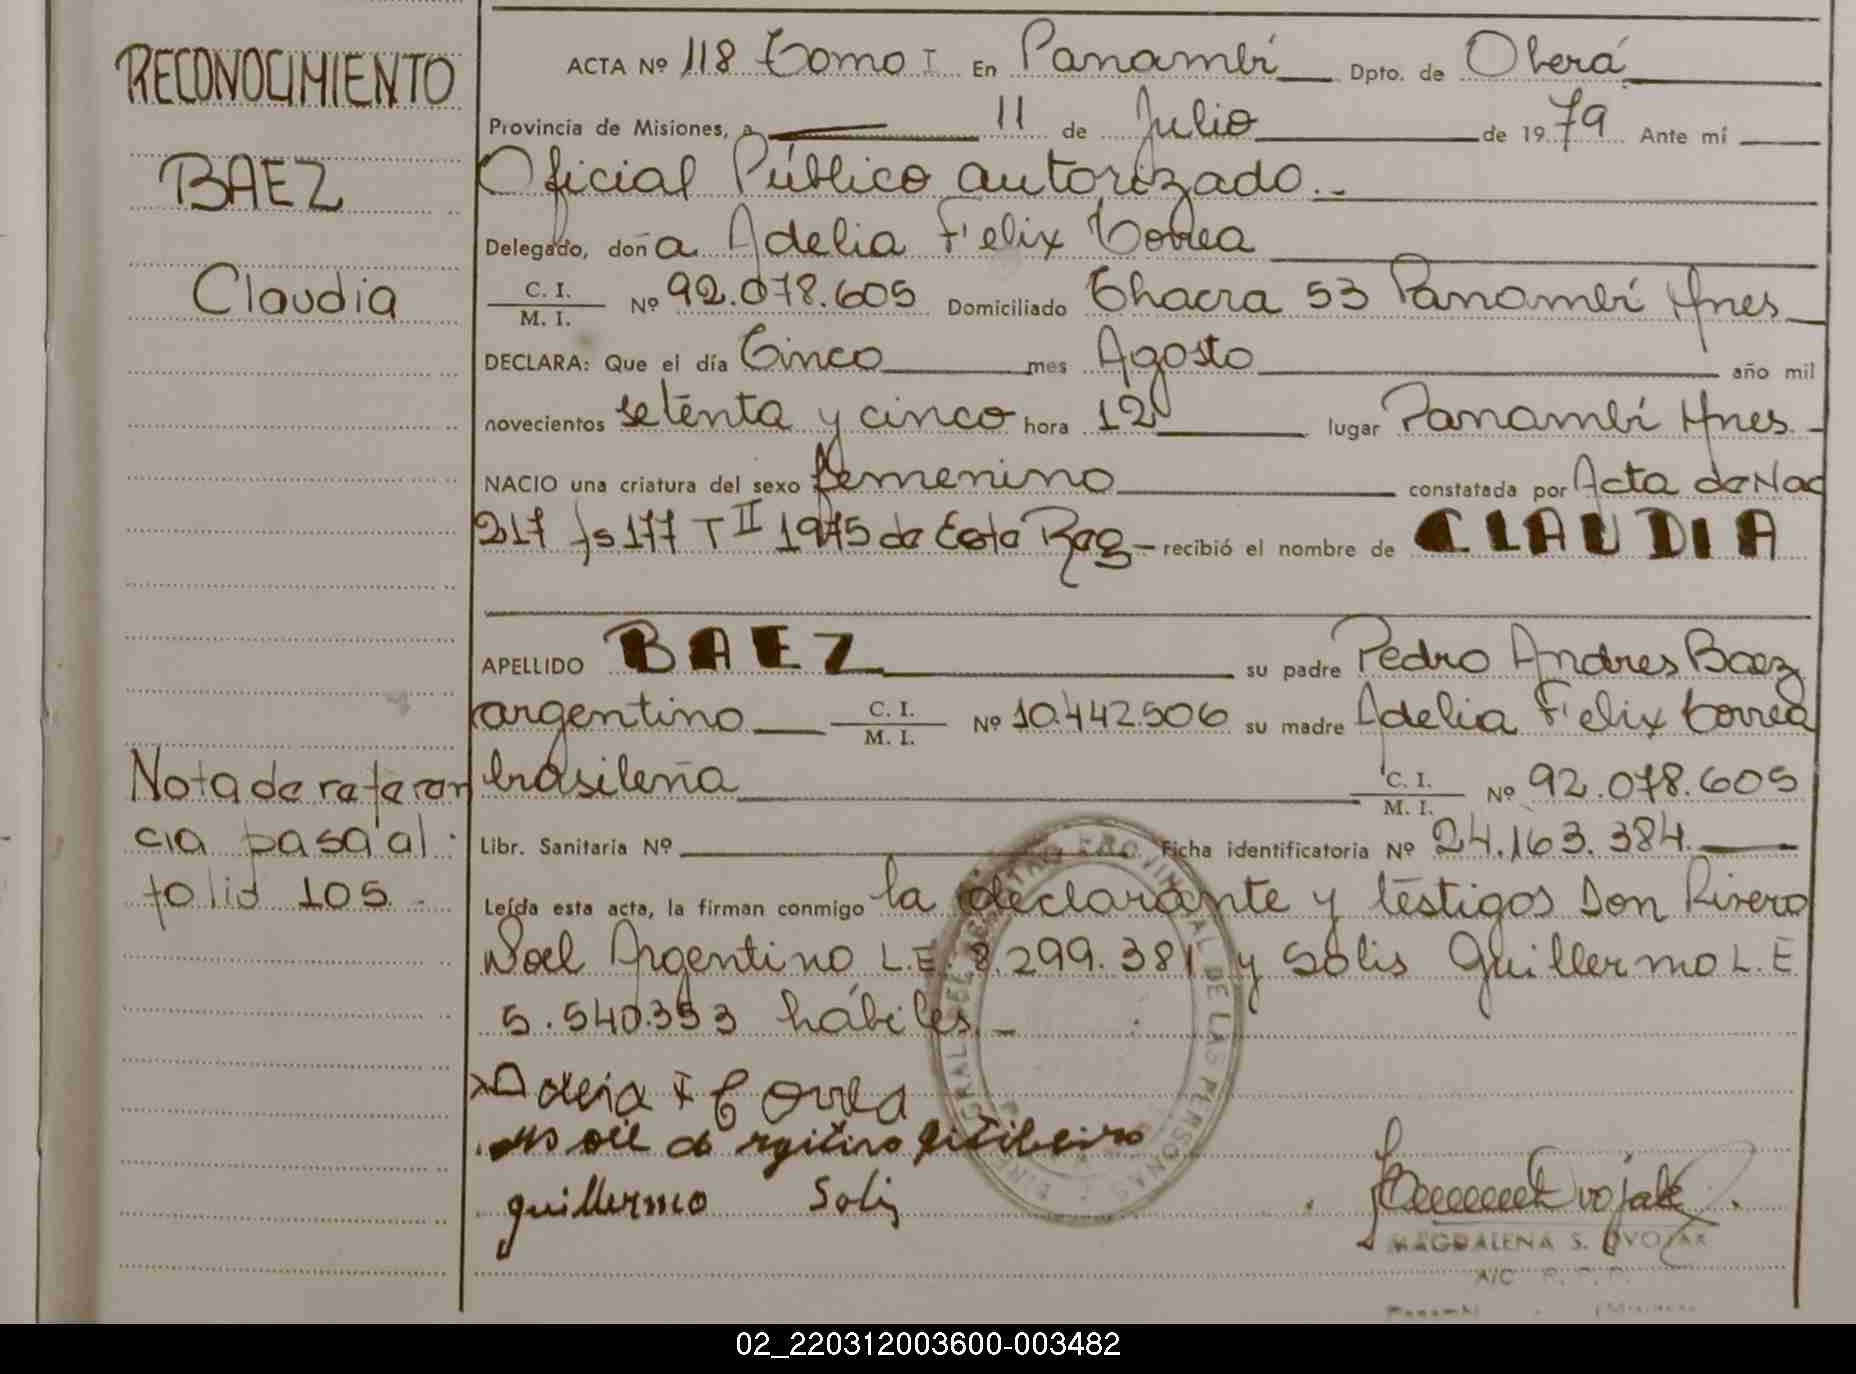 RECONOCIMIENTO
BAEZ
Claudia
Nota de referen
cia pasa al
folio 105
ACTA Nº 118 Tomo I En Panambí Dpto. de Oberá
Provincia de Misiones, a 11 de Julio de 1979 Ante mí
Oficial Público autorizado.-
Delegado, doña Adelia Felix Correa
C. I. / M. I. Nº 92.078.605 Domiciliado Chacra 53 Panambí Mnes
DECLARA: Que el día Cinco mes Agosto año mil
novecientos setenta y cinco hora 12 lugar Panambí Mnes.
NACIO una criatura del sexo femenino constatada por Acta de Nac
217 fs 177 T II 1975 de Esta Reg - recibió el nombre de CLAUDIA
APELLIDO BAEZ su padre Pedro Andres Baez
argentino C. I. / M. I. Nº 10.442.506 su madre Adelia Felix Correa
brasileña C. I. / M. I. Nº 92.078.605
Libr. Sanitaria Nº Ficha identificatoria Nº 24.163.384.
Leída esta acta, la firman conmigo la declarante y testigos Don Rivero
Noel Argentino L.E. 8.299.381 y Solis Guillermo L.E
5.540.353 hábiles.-
Adelia F Correa
guillermo Solis
MAGDALENA S. DVOJAK
A/C R. P. P.
02_220312003600-003482